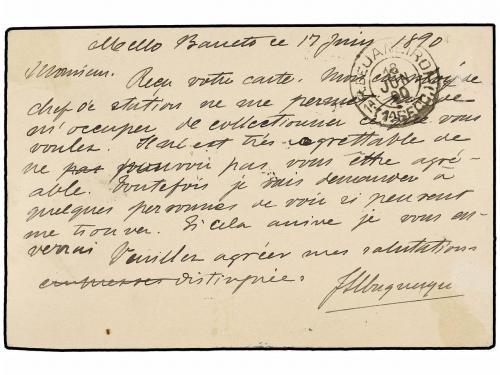 Mello Barreto ce 17 Juin 1890
Monsieur. Reçu votre carte. Mon de
chef de station ne me permet
m'occuper de collectionner ce que vous
voulez. Il m'est très regrettable de
ne pas pouvoir pas vous être agré-
able. Toutefois je vais demander à
quelques personnes de voir si peuvent
me trouver. Si cela arrive je vous en-
verrai Veuillez agréer mes salutations
empresses distinguée.
JSAlbuquerque
RIO DE JANEIRO
18
JUN
90
1ª SEC